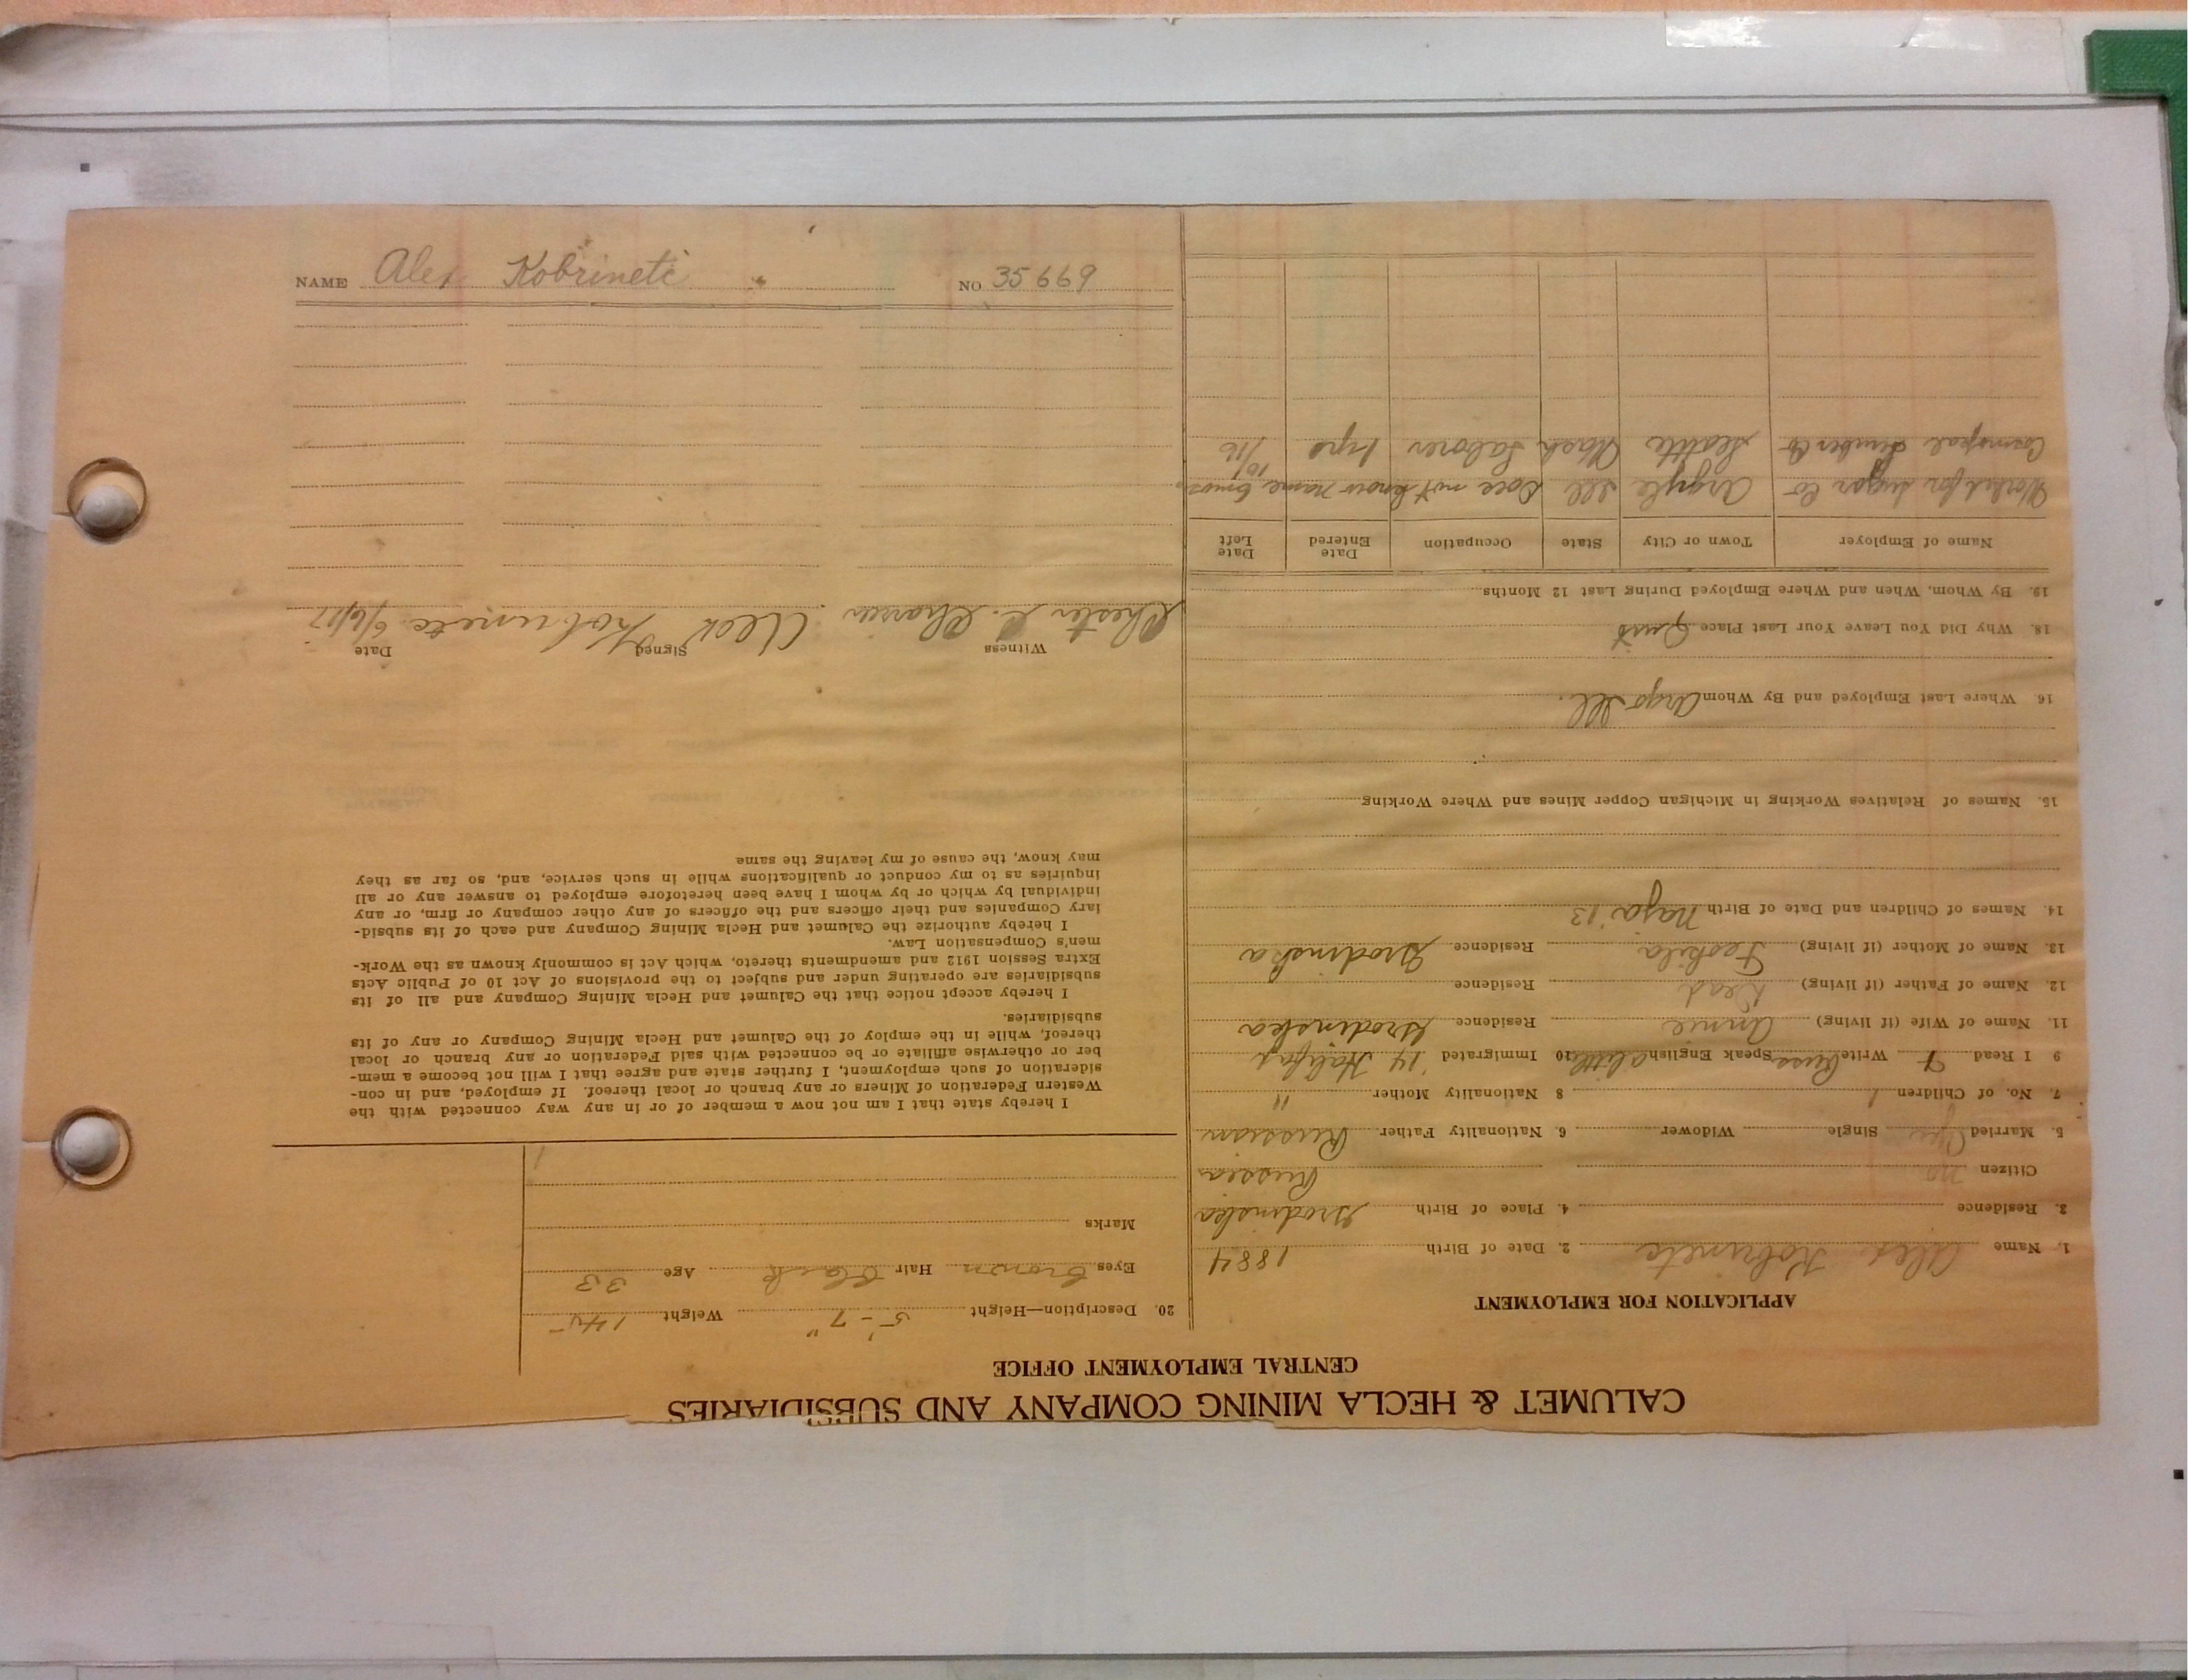 CALUMET & HECLA MINING COMPANY AND SUBSIDIARIES
CENTRAL EMPLOYMENT OFFICE
APPLICATION FOR EMPLOYMENT
1. Name Alex Kobrinetc 2. Date of Birth 1884
3. Residence 4. Place of Birth Grodinska
Citizen no Russia
5. Married Yes Single Widower 6. Nationality Father Russian
7. No. of Children 1 8 Nationality Mother "
9 I Read Write Russ Speak English a little 10 Immigrated '14 Halifax
11. Name of Wife (if living) Annie Residence Grodinska
12. Name of Father (if living) Dead Residence
13. Name of Mother (if living) Feskila Residence Grodinska
14. Names of Children and Date of Birth '13
15. Names of Relatives Working in Michigan Copper Mines and Where Working
16. Where Last Employed and By Whom Argo Ill.
18. Why Did You Leave Your Last Place Quit
19. By Whom, When and Where Employed During Last 12 Months
Name of Employer Town or City State Occupation Date Entered Date Left
Worked for Sugar Co Argyle Ill Does not know name 6 mos.
Lumber Co Seattle Wash Laborer 1 yr 10/16
20. Description—Height 5'-7" Weight 145
Eyes Brown Hair Black Age 33
Marks
I hereby state that I am not now a member of or in any way connected with the
Western Federation of Miners or any branch or local thereof. If employed, and in con-
sideration of such employment, I further state and agree that I will not become a mem-
ber or otherwise affiliate or be connected with said Federation or any branch or local
thereof, while in the employ of the Calumet and Hecla Mining Company or any of its
subsidiaries.
I hereby accept notice that the Calumet and Hecla Mining Company and all of its
subsidiaries are operating under and subject to the provisions of Act 10 of Public Acts
Extra Session 1912 and amendments thereto, which Act is commonly known as the Work-
men's Compensation Law.
I hereby authorize the Calumet and Hecla Mining Company and each of its subsid-
iary Companies and their officers and the officers of any other company or firm, or any
individual by which or by whom I have been heretofore employed to answer any or all
inquiries as to my conduct or qualifications while in such service, and, so far as they
may know, the cause of my leaving the same
Witness Signed Date
Chester Alex Kobrinetc 6/6/17
NAME Alex Kobrinetc NO 35669